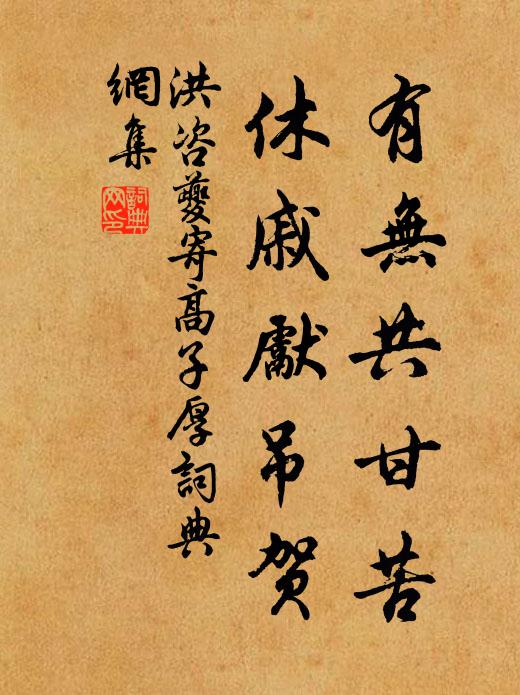 有無共甘苦
休戚獻吊賀
洪咨夔寄高子厚詞典
網集
詞典網印